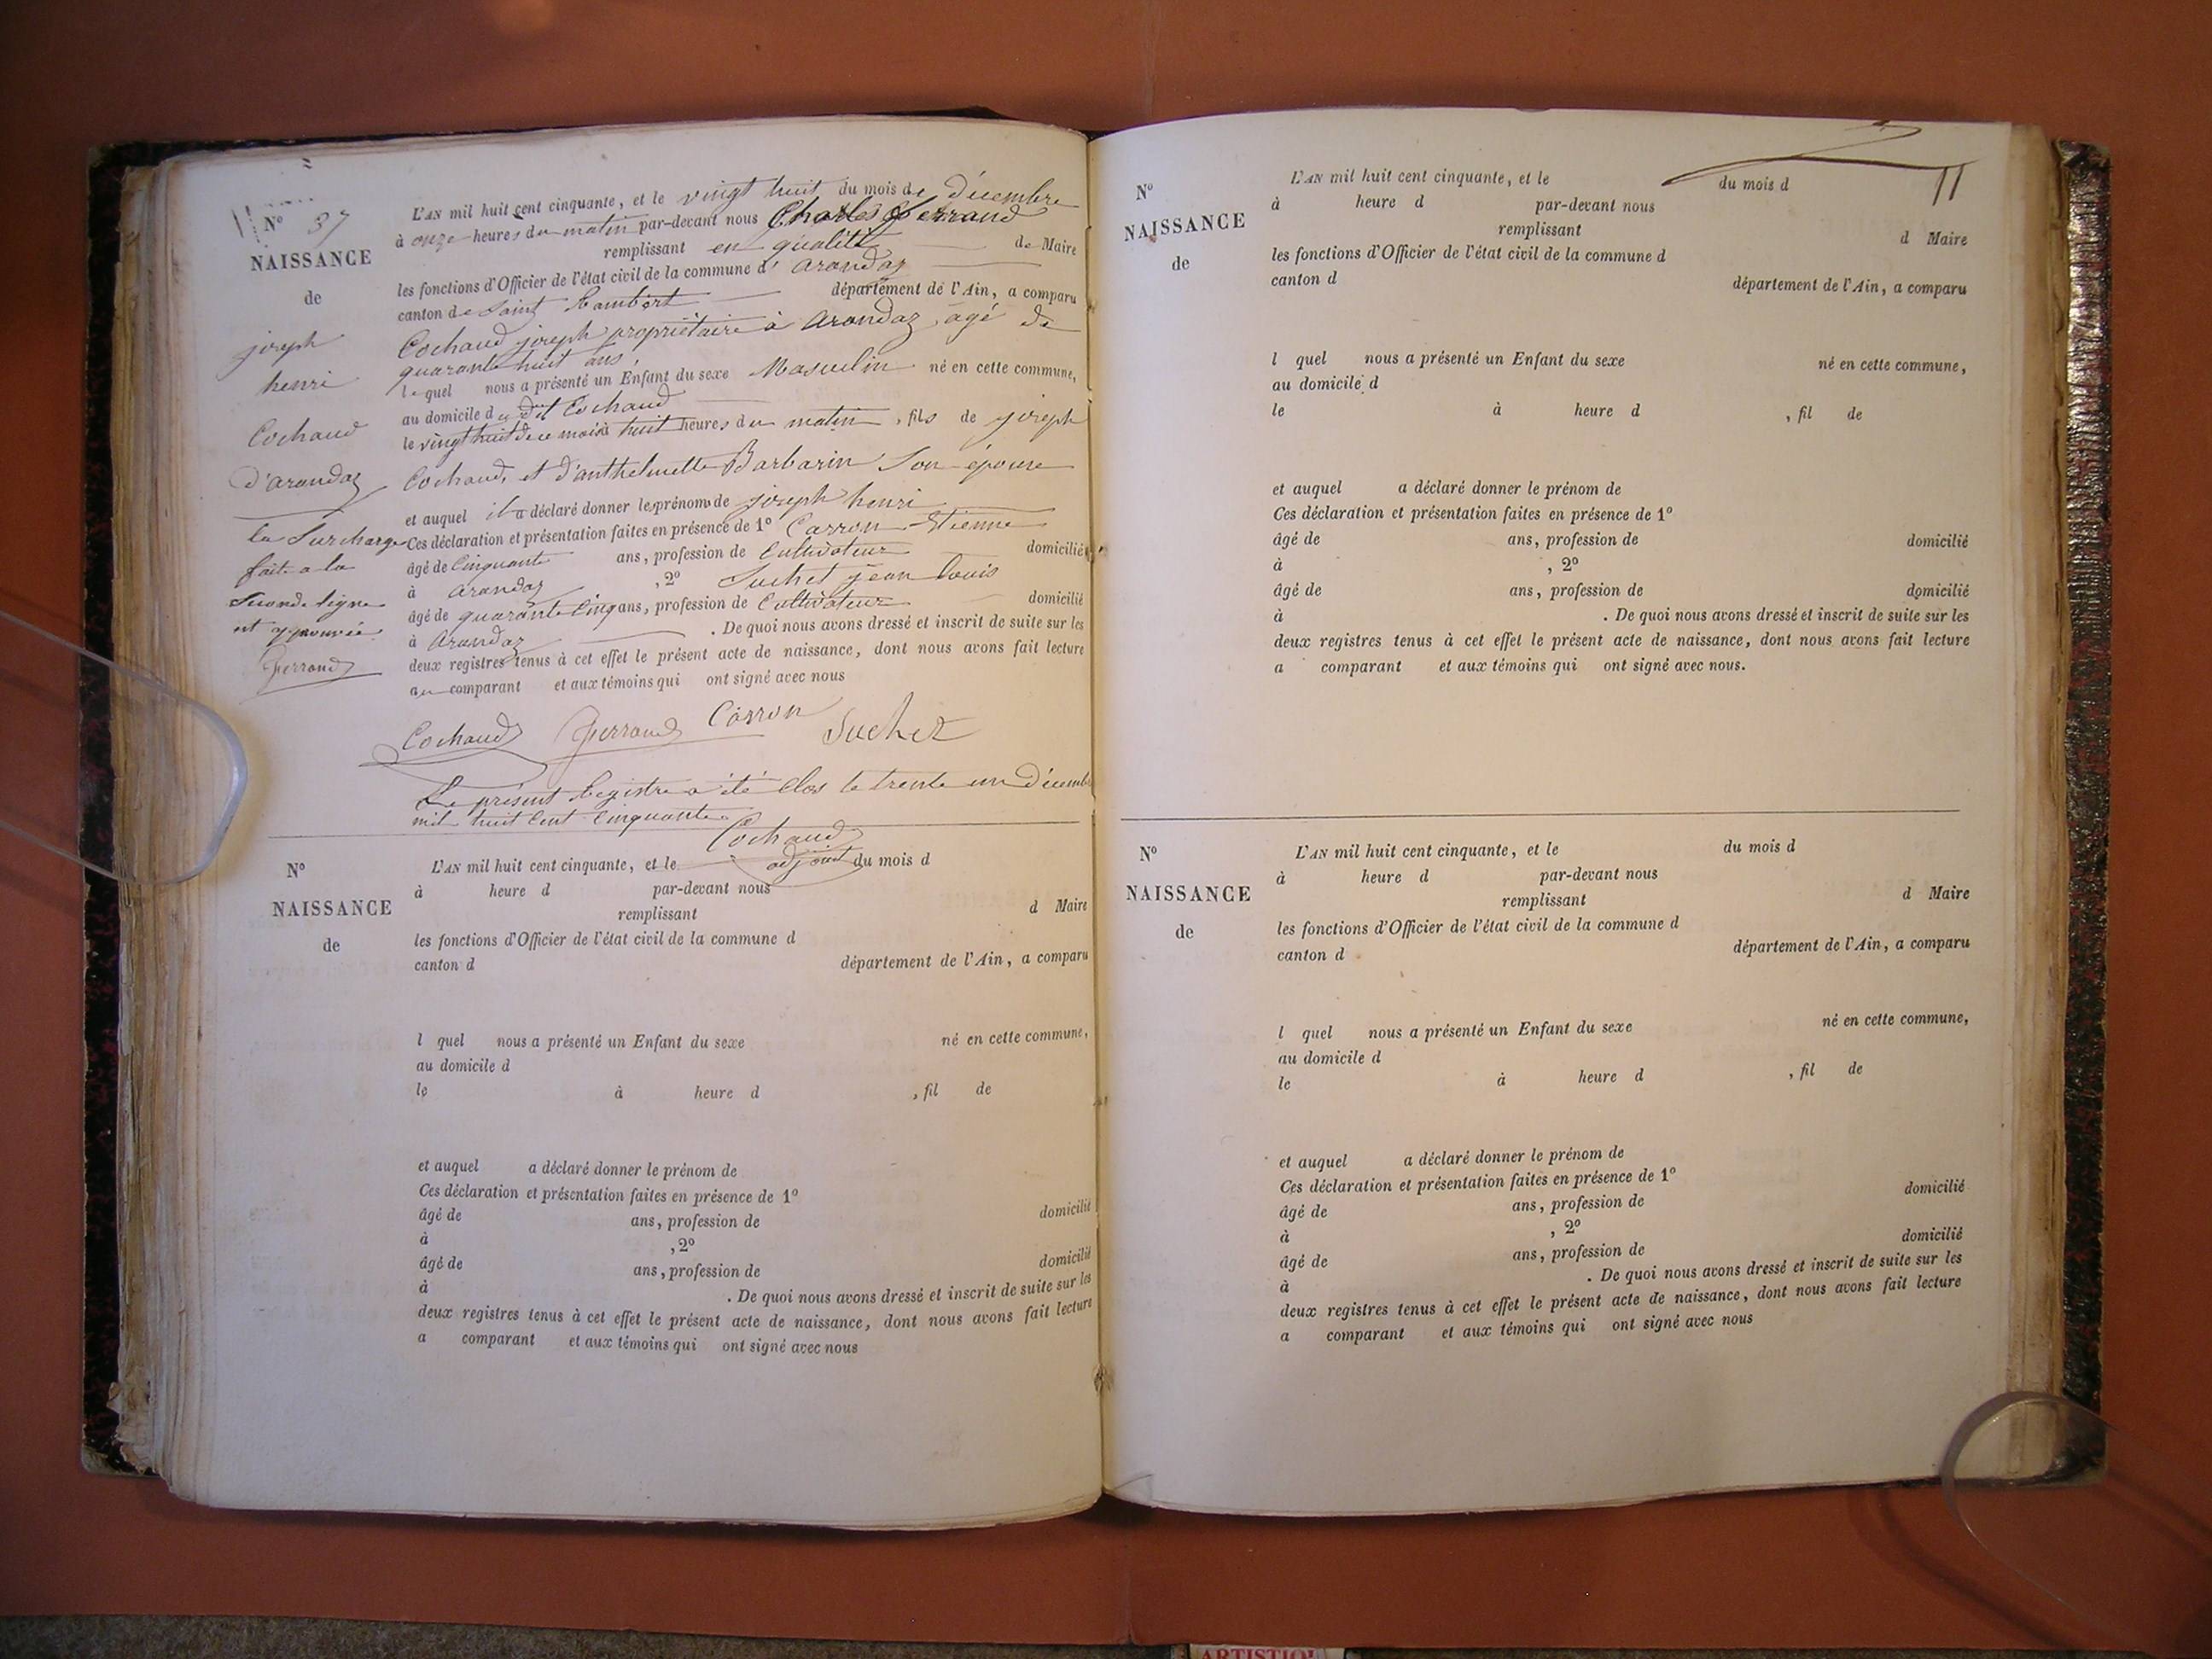 N° 37
NAISSANCE
de
joseph
henri
Cochaud
d'arandaz
la Surcharge
faite a la
seconde ligne
est approuvée
Perrand
L'AN mil huit cent cinquante, et le vingt huit du mois de décembre
à onze heures du matin par-devant nous Charles Perrand
remplissant en qualité de Maire
les fonctions d'Officier de l'état civil de la commune d' arandaz
canton de Saint Rambert département de l'Ain, a comparu
Cochaud joseph propriétaire à arandaz, âgé de
quarante huit ans,
lequel nous a présenté un Enfant du sexe Masculin né en cette commune,
au domicile du dit Cochaud
le vingt huit de ce mois à huit heures du matin, fils de joseph
Cochaud, et d'anthelmette Barbarin Son épouse
et auquel il a déclaré donner les prénoms de joseph henri
Ces déclaration et présentation faites en présence de 1° Carron Etienne
âgé de Cinquante ans, profession de Cultivateur domicilié
à arandaz, 2° Suchet jean louis
âgé de quarante Cinq ans, profession de Cultivateur domicilié
à arandaz. De quoi nous avons dressé et inscrit de suite sur les
deux registres tenus à cet effet le présent acte de naissance, dont nous avons fait lecture
au comparant et aux témoins qui ont signé avec nous
Cochaud Perrand Carron Suchet
Le présent Registre a été Clos le trente un Décembre
mil huit Cent Cinquante
Cochaud
adjoint
N°
NAISSANCE
de
L'AN mil huit cent cinquante, et le du mois d
à heure d par-devant nous
remplissant d Maire
les fonctions d'Officier de l'état civil de la commune d
canton d département de l'Ain, a comparu
l quel nous a présenté un Enfant du sexe né en cette commune,
au domicile d
le à heure d , fil de
et auquel a déclaré donner le prénom de
Ces déclaration et présentation faites en présence de 1°
âgé de ans, profession de domicilié
à , 2°
âgé de ans, profession de domicilié
à . De quoi nous avons dressé et inscrit de suite sur les
deux registres tenus à cet effet le présent acte de naissance, dont nous avons fait lecture
a comparant et aux témoins qui ont signé avec nous
N°
NAISSANCE
de
L'AN mil huit cent cinquante, et le du mois d
à heure d par-devant nous
remplissant d Maire
les fonctions d'Officier de l'état civil de la commune d
canton d département de l'Ain, a comparu
l quel nous a présenté un Enfant du sexe né en cette commune,
au domicile d
le à heure d , fil de
et auquel a déclaré donner le prénom de
Ces déclaration et présentation faites en présence de 1°
âgé de ans, profession de domicilié
à , 2°
âgé de ans, profession de domicilié
à . De quoi nous avons dressé et inscrit de suite sur les
deux registres tenus à cet effet le présent acte de naissance, dont nous avons fait lecture
a comparant et aux témoins qui ont signé avec nous.
N°
NAISSANCE
de
L'AN mil huit cent cinquante, et le du mois d
à heure d par-devant nous
remplissant d Maire
les fonctions d'Officier de l'état civil de la commune d
canton d département de l'Ain, a comparu
l quel nous a présenté un Enfant du sexe né en cette commune,
au domicile d
le à heure d , fil de
et auquel a déclaré donner le prénom de
Ces déclaration et présentation faites en présence de 1°
âgé de ans, profession de domicilié
à , 2°
âgé de ans, profession de domicilié
à . De quoi nous avons dressé et inscrit de suite sur les
deux registres tenus à cet effet le présent acte de naissance, dont nous avons fait lecture
a comparant et aux témoins qui ont signé avec nous